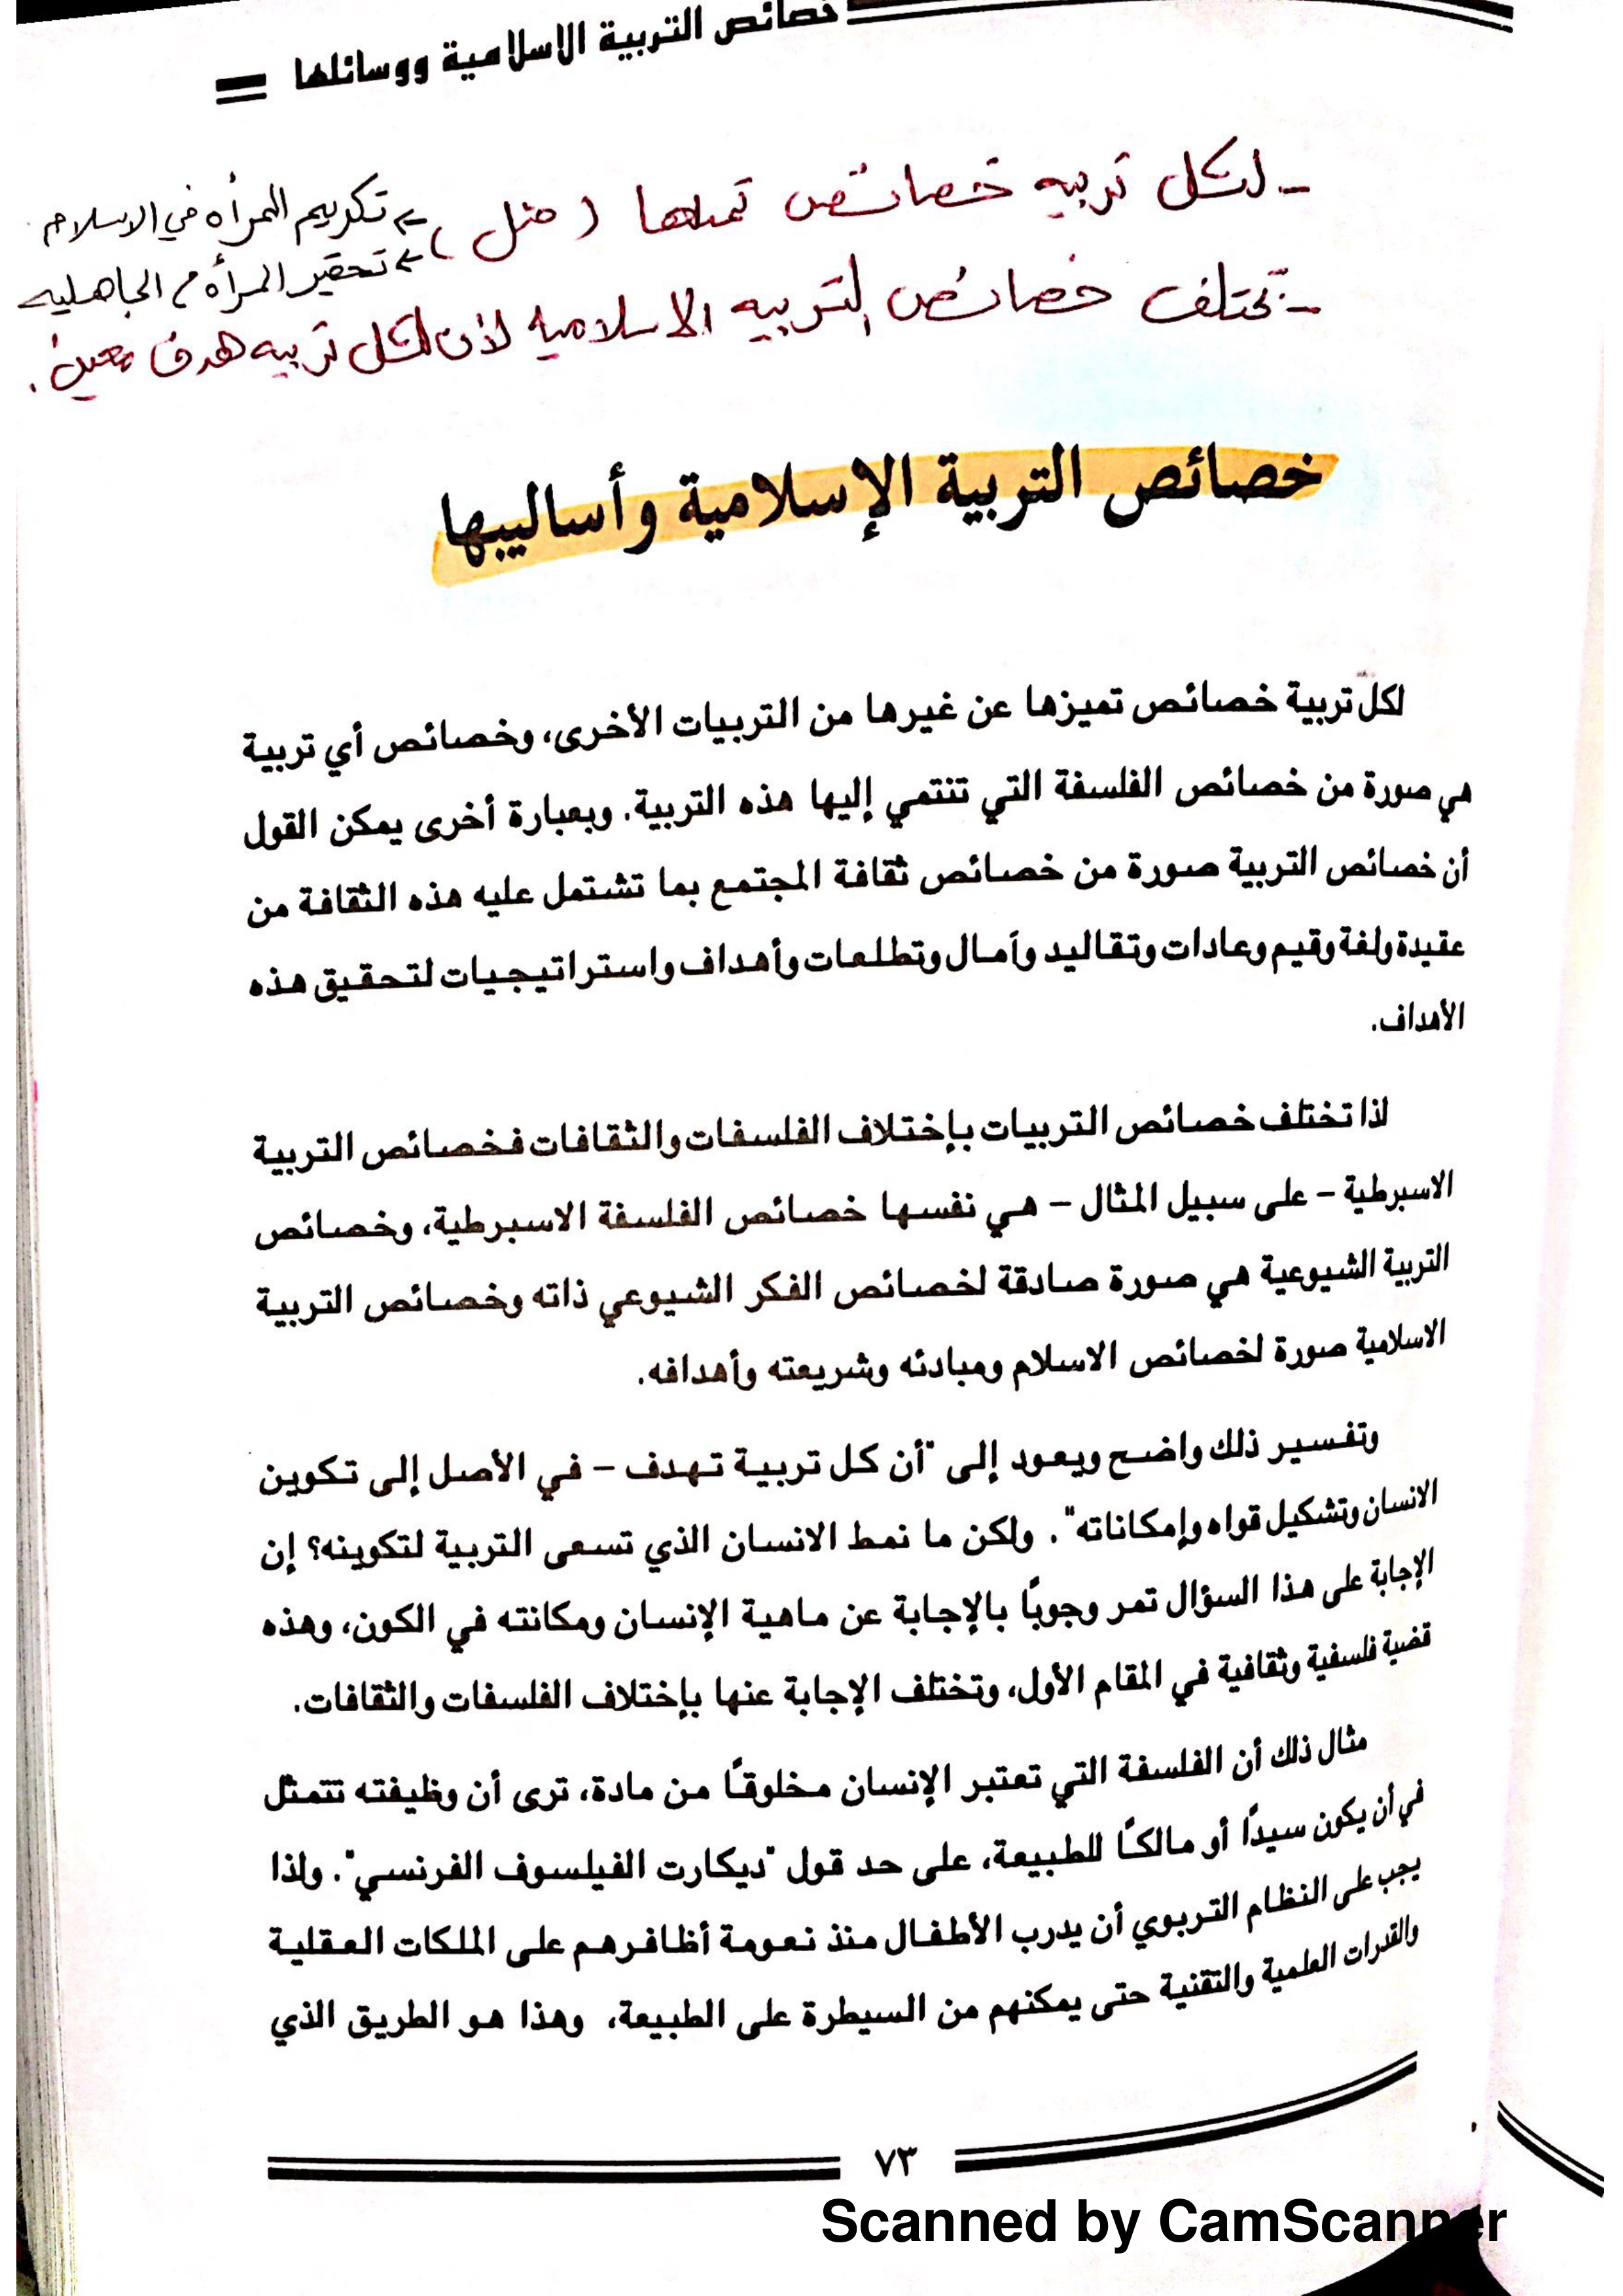 خصائص التربية الاسلامية ووسائلها
- لكل تربيه خصائص تمثلها ( مثل )
← تكريم المرأه في الاسلام
← تحقير المرأه م الجاهليه
- تختلف خصائص التربيه الاسلاميه لأن لكل تربيه هدف معين .
خصائص التربية الإسلامية وأساليبها
لكل تربية خصائص تميزها عن غيرها من التربيات الأخرى، وخصائص أي تربية
هي صورة من خصائص الفلسفة التي تنتمي إليها هذه التربية. وبعبارة أخرى يمكن القول
أن خصائص التربية صورة من خصائص ثقافة المجتمع بما تشتمل عليه هذه الثقافة من
عقيدة ولغة وقيم وعادات وتقاليد وآمال وتطلعات وأهداف واستراتيجيات لتحقيق هذه
الأهداف.
لذا تختلف خصائص التربيات بإختلاف الفلسفات والثقافات فخصائص التربية
الاسبرطية - على سبيل المثال - هي نفسها خصائص الفلسفة الاسبرطية، وخصائص
التربية الشيوعية هي صورة صادقة لخصائص الفكر الشيوعي ذاته وخصائص التربية
الاسلامية صورة لخصائص الاسلام ومبادئه وشريعته وأهدافه.
وتفسير ذلك واضح ويعود إلى "أن كل تربية تهدف - في الأصل إلى تكوين
الانسان وتشكيل قواه وإمكاناته". ولكن ما نمط الانسان الذي تسعى التربية لتكوينه؟ إن
الإجابة على هذا السؤال تمر وجوبًا بالإجابة عن ماهية الإنسان ومكانته في الكون، وهذه
قضية فلسفية وثقافية في المقام الأول، وتختلف الإجابة عنها بإختلاف الفلسفات والثقافات.
مثال ذلك أن الفلسفة التي تعتبر الإنسان مخلوقًا من مادة، ترى أن وظيفته تتمثل
في أن يكون سيدًا أو مالكًا للطبيعة، على حد قول "ديكارت الفيلسوف الفرنسي". ولذا
يجب على النظام التربوي أن يدرب الأطفال منذ نعومة أظافرهم على الملكات العقلية
والقدرات العلمية والتقنية حتى يمكنهم من السيطرة على الطبيعة، وهذا هو الطريق الذي
٧٣
Scanned by CamScanner